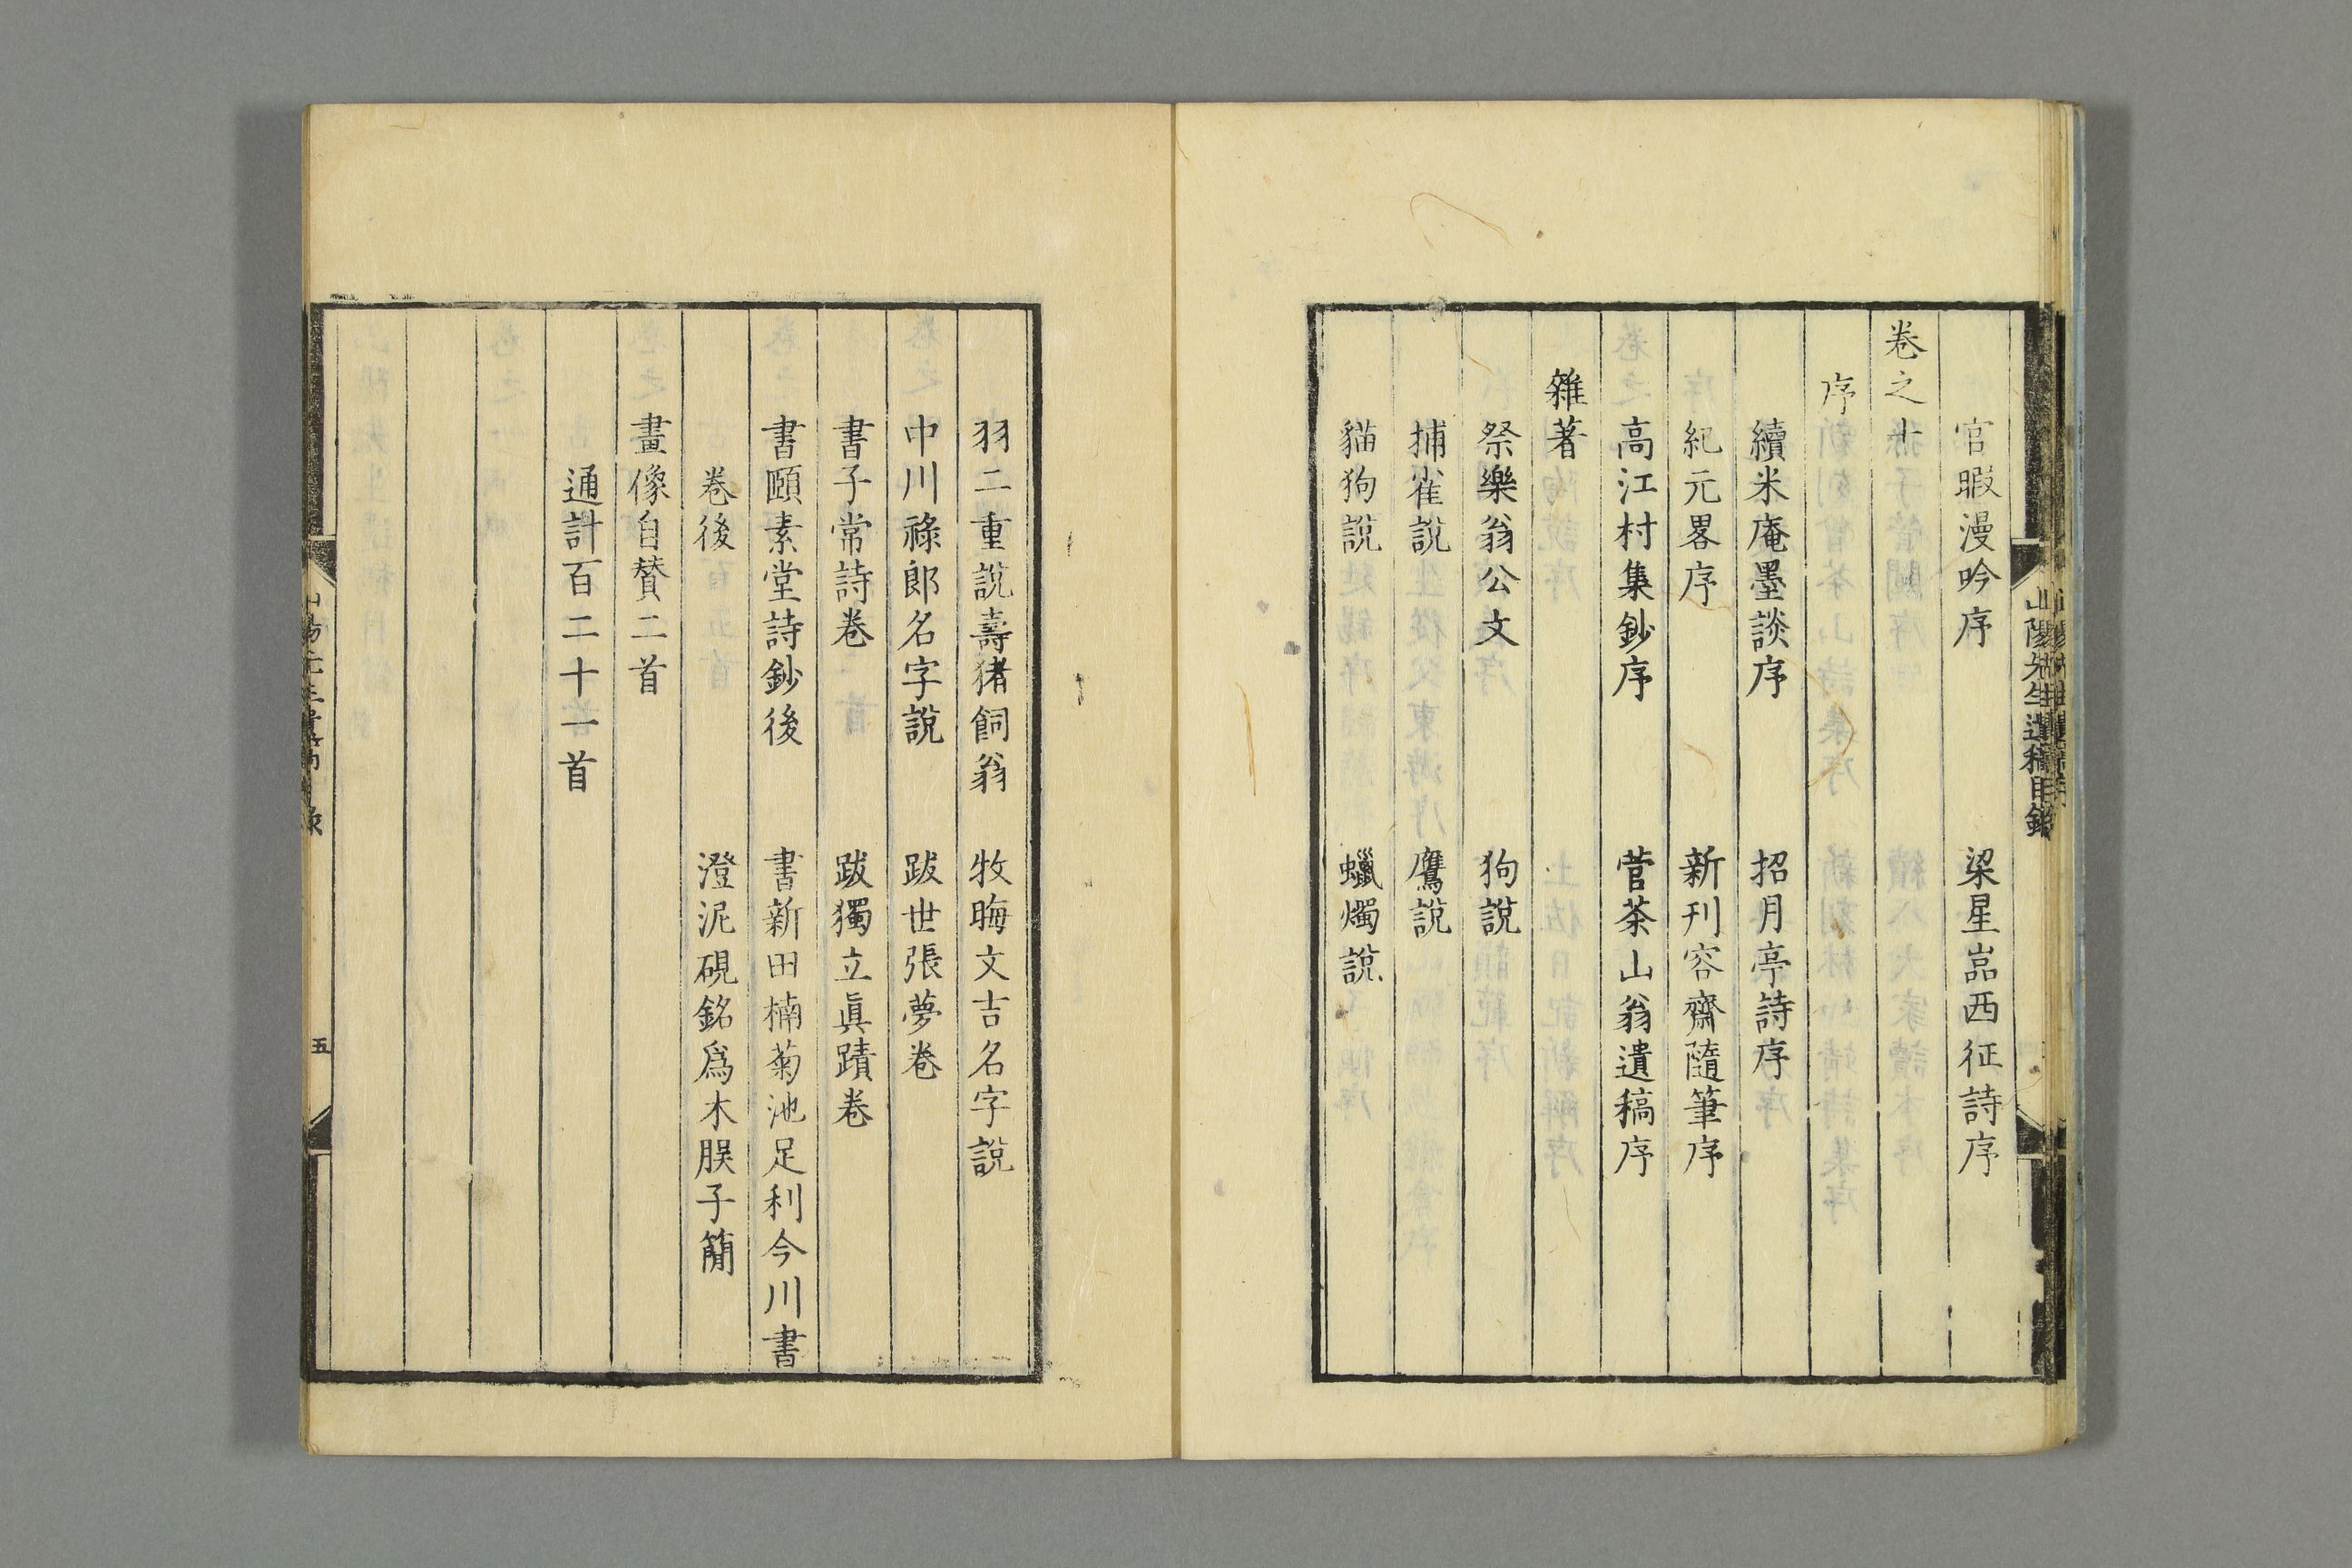 官暇漫吟序　梁星嵓西征詩序
卷之十
序
續米庵墨談序　招月亭詩序
紀元畧序　新刊容齋隨筆序
高江村集鈔序　菅茶山翁遺稿序
雜著
祭樂翁公文　狗說
捕雀說　鷹說
貓狗說　蠟燭說
山陽先生遺稿目錄
羽二重說壽猪飼翁　牧晦文吉名字說
中川祿郎名字說　跋世張夢卷
書子常詩卷　跋獨立眞蹟卷
書頤素堂詩鈔後　書新田楠菊池足利今川書
卷後　澄泥硯銘爲木脵子簡
畫像自賛二首
通計百二十一首
五